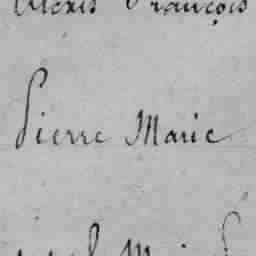 Alexis François
Pierre Marie